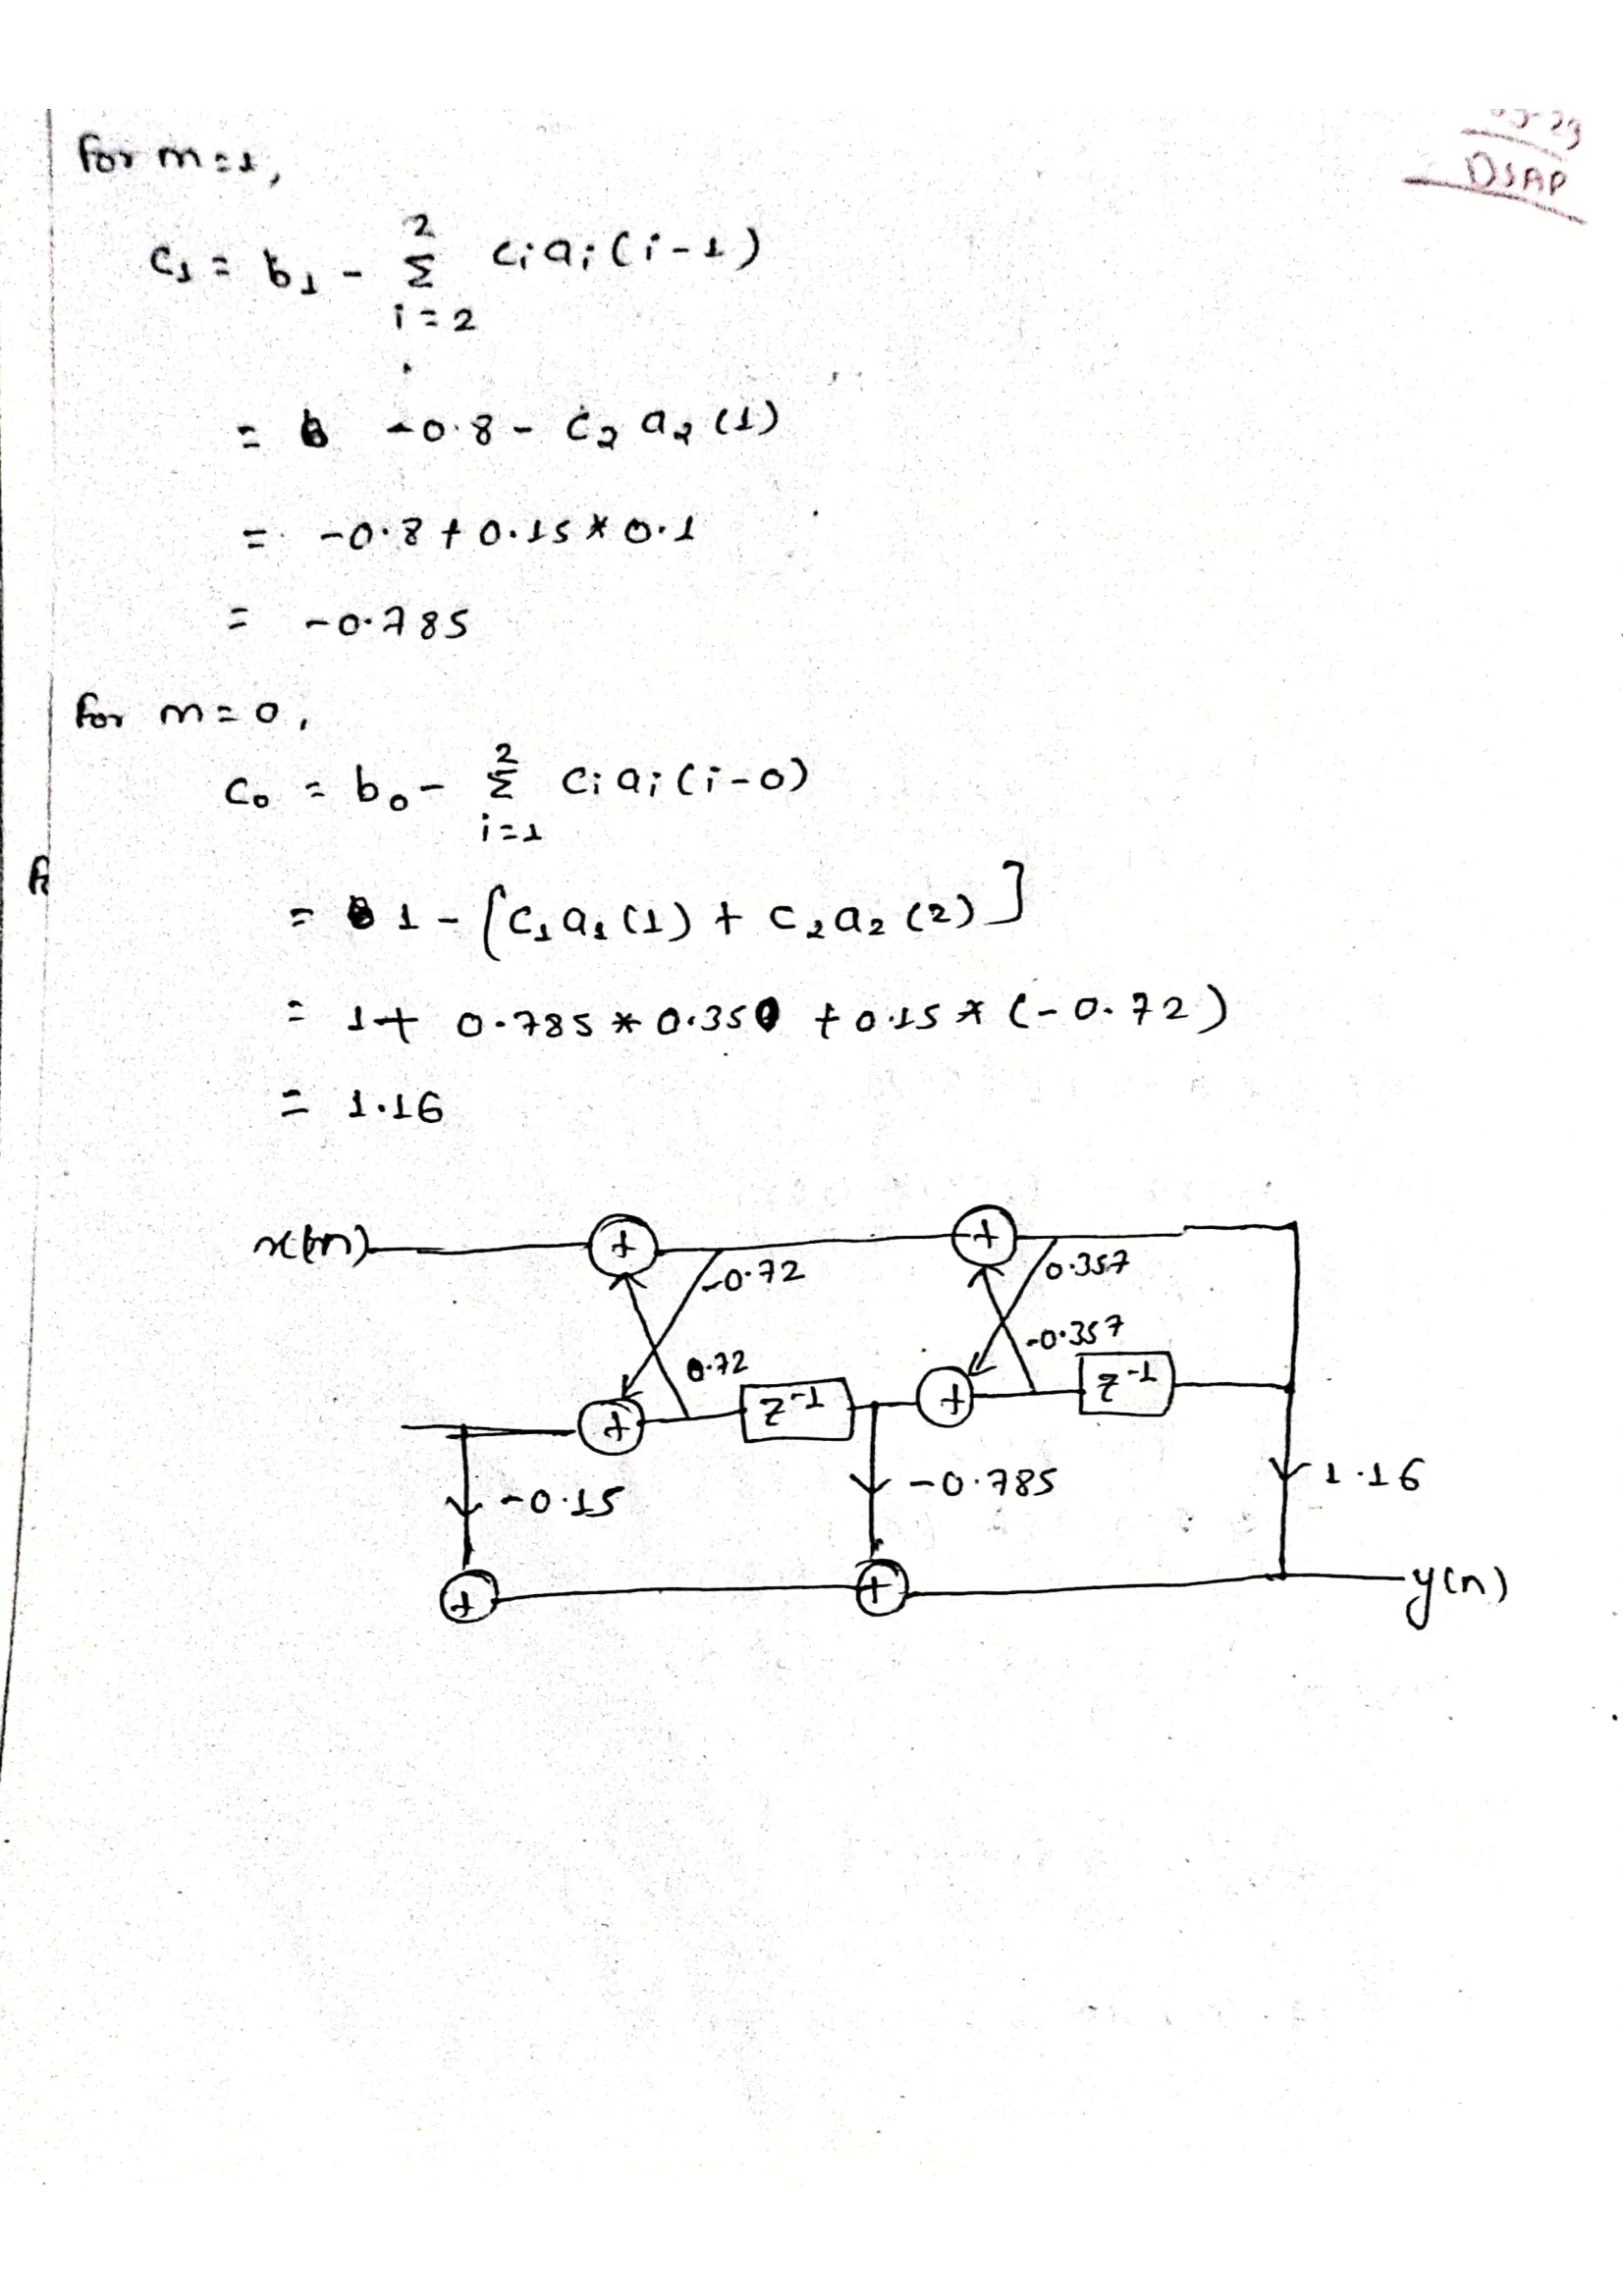 DSAP
for m=1,
2
c₁ = b₁ - Σ cᵢaᵢ(i-1)
i=2
= -0.8 - c₂ a₂(1)
= -0.8 + 0.15 * 0.1
= -0.785
for m=0,
2
c₀ = b₀ - Σ cᵢaᵢ(i-0)
i=1
= 1 - [c₁a₁(1) + c₂a₂(2)]
= 1 + 0.785 * 0.350 + 0.15 * (-0.72)
= 1.16
x(n) + + 
-0.72 0.357
0.72 -0.357
+ z⁻¹ + z⁻¹
-0.15 -0.785 1.16
+ + y(n)